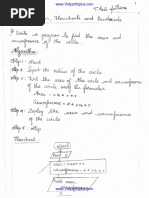 www.Vidyarthiplus.com
Flowcharts and
P Write a program to find the area and
circumference of the circle.
Algorithm:
Step 1: Start
Step 2: Input the radius of the circle
Step 3: Find the area of the circle and circumference
of the circle using the formula
Area = π * r * r
Circumference = 2 * π * r
Step 4: Display the area and circumference
of the circle
Step 5: Stop
Flowchart:
Start
www.Vidyarthiplus.com